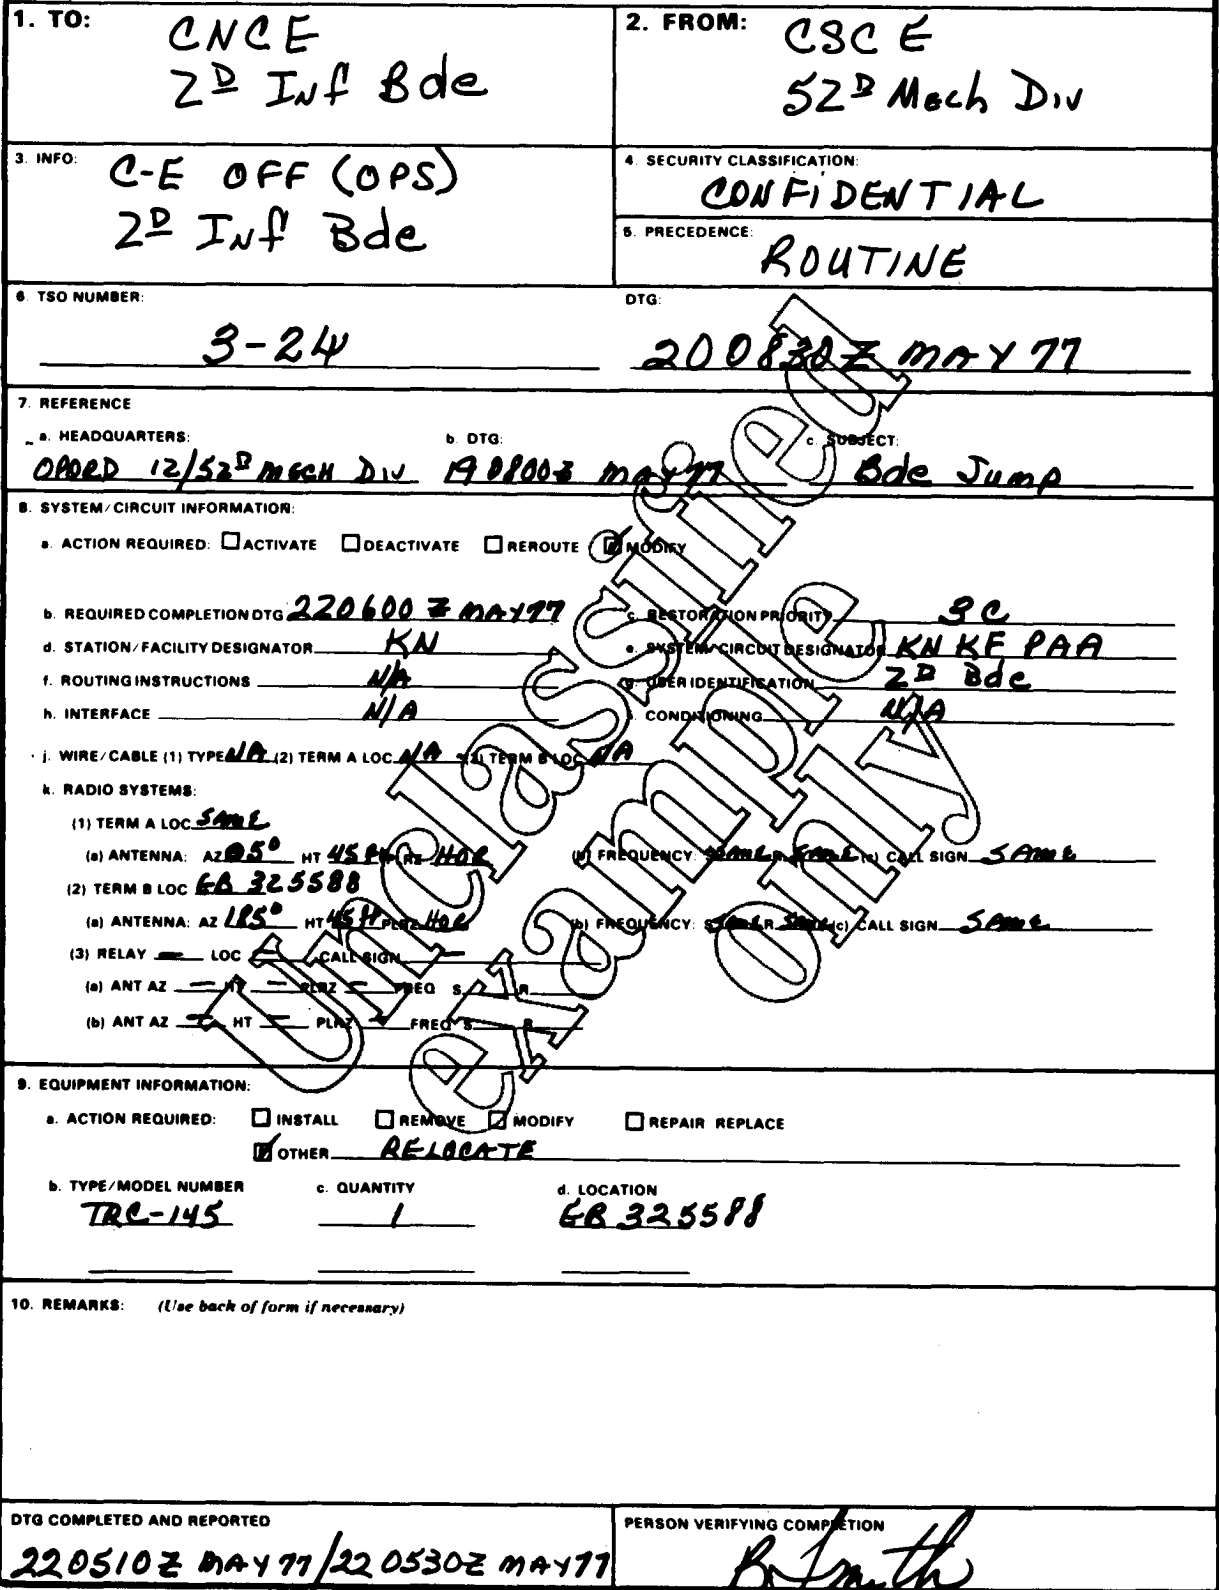 1. TO: CNCE
2D Inf Bde
2. FROM: CSCE
52D Mech Div
3. INFO: C-E OFF (OPS)
2D Inf Bde
4. SECURITY CLASSIFICATION:
CONFIDENTIAL
5. PRECEDENCE:
ROUTINE
6. TSO NUMBER:
3-24
DTG:
200830Z MAY 77
7. REFERENCE
a. HEADQUARTERS: b. DTG: c. SUBJECT:
OPORD 12/52D MECH DIV 190800Z MAY 77 Bde Jump
8. SYSTEM/CIRCUIT INFORMATION:
a. ACTION REQUIRED: ACTIVATE DEACTIVATE REROUTE MODIFY
b. REQUIRED COMPLETION DTG 220600 Z MAY77 c. RESTORATION PRIORITY 3C
d. STATION/FACILITY DESIGNATOR KN e. SYSTEM/CIRCUIT DESIGNATOR KN KF PAA
f. ROUTING INSTRUCTIONS N/A g. USER IDENTIFICATION 2D Bde
h. INTERFACE N/A i. CONDITIONING N/A
j. WIRE/CABLE (1) TYPE NA (2) TERM A LOC N/A (3) TERM B LOC N/A
k. RADIO SYSTEMS:
(1) TERM A LOC SAME
(a) ANTENNA: AZ 05° HT 45 Ft PLRZ HOR (b) FREQUENCY: S SAME R SAME (c) CALL SIGN SAME
(2) TERM B LOC GB 325588
(a) ANTENNA: AZ 185° HT 45 Ft PLRZ HOR (b) FREQUENCY: S SAME R SAME (c) CALL SIGN SAME
(3) RELAY — LOC — CALL SIGN —
(a) ANT AZ — HT — PLRZ — FREQ S R
(b) ANT AZ — HT — PLRZ — FREQ S R
Unclassified
example
only
9. EQUIPMENT INFORMATION:
a. ACTION REQUIRED: INSTALL REMOVE MODIFY REPAIR REPLACE
OTHER RELOCATE
b. TYPE/MODEL NUMBER c. QUANTITY d. LOCATION
TRC-145 1 GB 325588
10. REMARKS: (Use back of form if necessary)
DTG COMPLETED AND REPORTED
220510Z MAY 77/220530Z MAY77
PERSON VERIFYING COMPLETION
B Smith